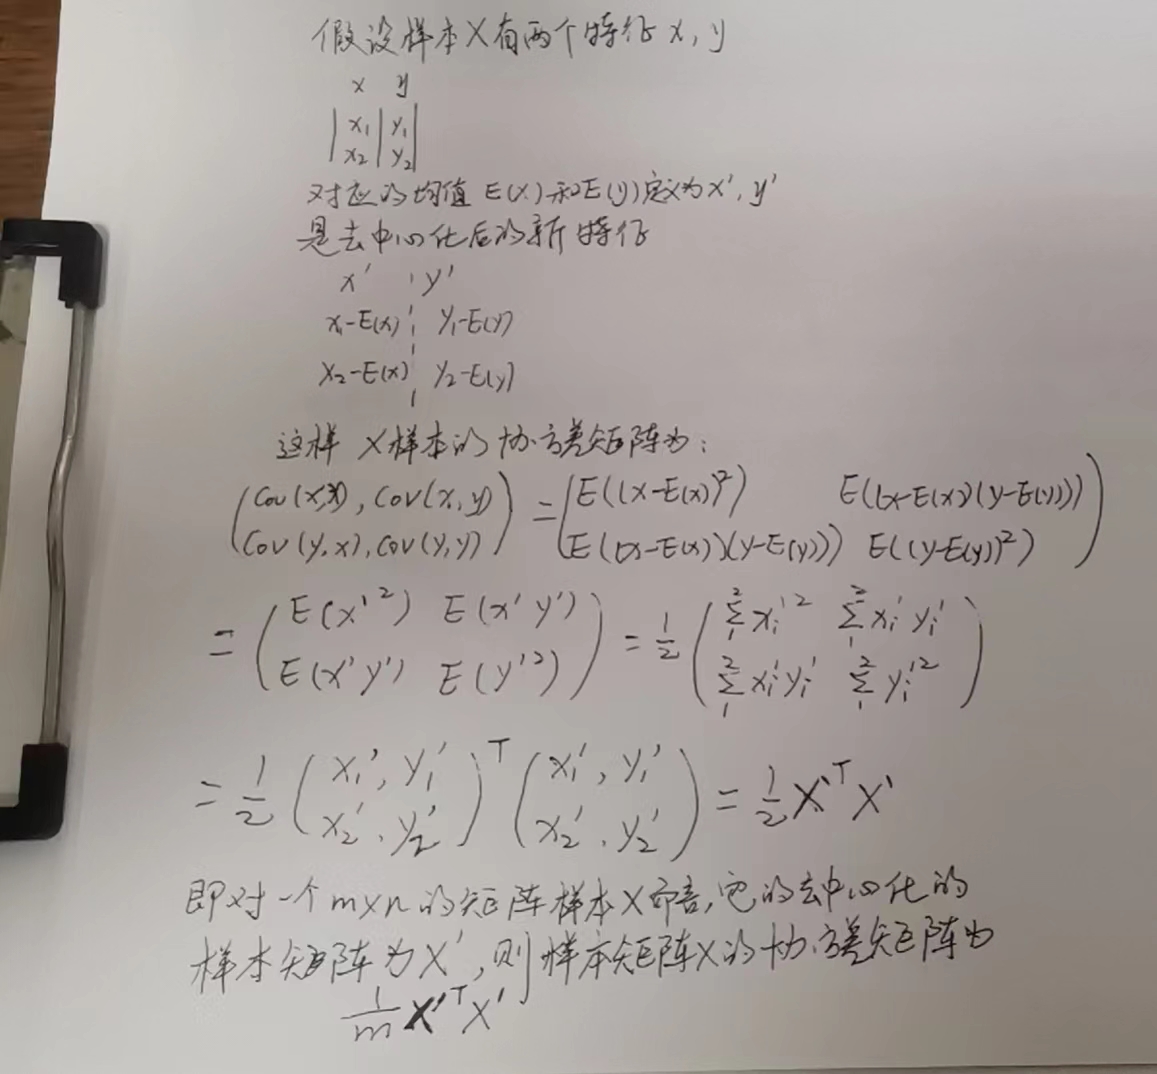 假设样本X有两个特征 x, y
x y
| x₁ | y₁ |
| x₂ | y₂ |
对应的均值 E(x)和E(y)定义为x', y'
是去中心化后的新特征
x' y'
x₁-E(x) y₁-E(y)
x₂-E(x) y₂-E(y)
这样 X样本的协方差矩阵为:
(Cov(x,x), Cov(x,y)) = (E((x-E(x))²) E((x-E(x))(y-E(y))))
(Cov(y,x), Cov(y,y)) (E((x-E(x))(y-E(y))) E((y-E(y))²))
= (E(x'²) E(x'y') ; E(x'y') E(y'²)) = 1/2 (Σ₁² xᵢ'² Σ₁² xᵢ'yᵢ' ; Σ₁² xᵢ'yᵢ' Σ₁² yᵢ'²)
= 1/2 (x₁', y₁' ; x₂', y₂')ᵀ (x₁', y₁' ; x₂', y₂') = 1/2 X'ᵀX'
即对一个m×n的矩阵样本X而言,它的去中心化的
样本矩阵为X',则样本矩阵X的协方差矩阵为
1/m X'ᵀX'